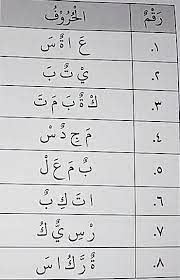 رَقْمٌ الْحُرُوْفُ
١. عَ ا ةٌ سَ
٢. يْ تٌ بَ
٣. كْ ةٌ بَ مَ تَ
٤. مَ جِ دٌ سْ
٥. بٌ مَ عَ لْ
٦. ا تَ كِ بٌ
٧. رْ سِ يٌّ كُ
٨. ةٌ رَّ كُ ا سَ